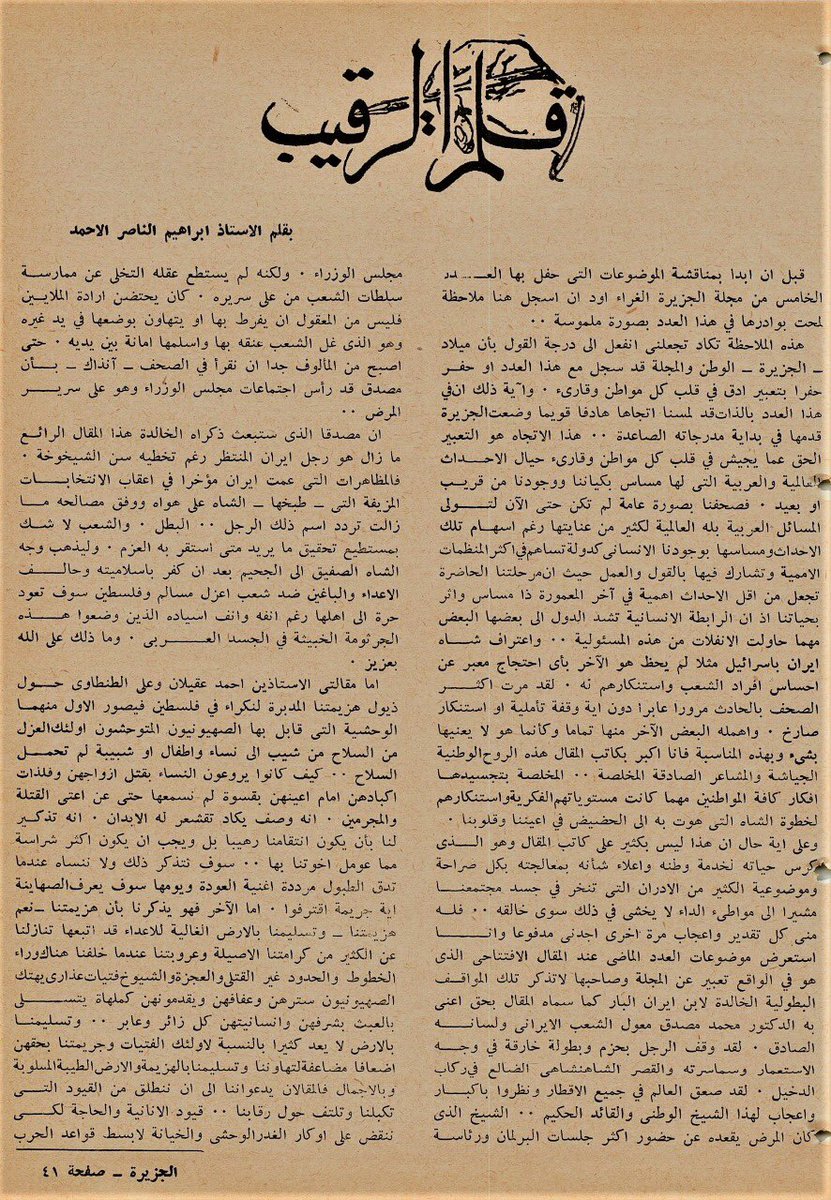 قلم الرقيب
بقلم الاستاذ ابراهيم الناصر الاحمد
قبل ان ابدا بمناقشة الموضوعات التى حفل بها العـــدد
الخامس من مجلة الجزيرة الغراء اود ان اسجل هنا ملاحظة
لمحت بوادرها في هذا العدد بصورة ملموسة ٠٠
هذه الملاحظة تكاد تجعلنى انفعل الى درجة القول بأن ميلاد
ـ الجزيرة ـ الوطن والمجلة قد سجل مع هذا العدد او حفر
حفرا بتعبير ادق في قلب كل مواطن وقارىء ٠ وآية ذلك ان في
هذا العدد بالذات قد لمسنا اتجاها هادفا قويما وضعت الجزيرة
قدمها في بداية مدرجاته الصاعدة ٠٠ هذا الاتجاه هو التعبير
الحق عما يجيش في قلب كل مواطن وقارىء حيال الاحــداث
العالمية والعربية التى لها مساس بكياننا ووجودنا من قريب
او بعيد ٠ فصحفنا بصورة عامة لم تكن حتى الآن لتــولى
المسائل العربية بله العالمية لكثير من عنايتها رغم اسهام تلك
الاحداث ومساسها بوجودنا الانسانى كدولة تساهم في اكثر المنظمات
الاممية وتشارك فيها بالقول والعمل حيث ان مرحلتنا الحاضرة
تجعل من اقل الاحداث اهمية في آخر المعمورة ذا مساس واثر
بحياتنا اذ ان الرابطة الانسانية تشد الدول الى بعضها البعض
مهما حاولت الانفلات من هذه المسئولية ٠٠ واعتراف شــاه
ايران باسرائيل مثلا لم يحظ هو الآخر بأى احتجاج معبر عن
احساس افراد الشعب واستنكارهم له ٠ لقد مرت اكثــر
الصحف بالحادث مرورا عابرا دون اية وقفة تأملية او استنكار
صارخ ٠ واهمله البعض الآخر منها تماما وكأنما هو لا يعنيها
بشىء وبهذه المناسبة فانا اكبر بكاتب المقال هذه الروح الوطنية
الجياشة والمشاعر الصادقة المخلصة ٠٠ المخلصة بتجسيدهـا
افكار كافة المواطنين مهما كانت مستوياتهم الفكرية واستنكارهم
لخطوة الشاه التى هوت به الى الحضيض في اعيننا وقلوبنا ٠
وعلى اية حال ان هذا ليس بكثير على كاتب المقال وهو الـذى
كرس حياته لخدمة وطنه واعلاء شأنه بمعالجته بكل صراحة
وموضوعية الكثير من الادران التى تنخر في جسد مجتمعنــا
مشيرا الى مواطىء الداء لا يخشى في ذلك سوى خالقه ٠٠ فلـه
منى كل تقدير واعجاب مرة اخرى اجدنى مدفوعا وانــا
استعرض موضوعات العدد الماضى عند المقال الافتتاحى الذى
هو في الواقع تعبير عن المجلة وصاحبها لاتذكر تلك المواقــف
البطولية الخالدة لابن ايران البار كما سماه المقال بحق اعنى
به الدكتور محمد مصدق معول الشعب الايرانى ولسانــه
الصادق ٠ لقد وقف الرجل بحزم وبطولة خارقة في وجــه
الاستعمار وسماسرته والقصر الشاهنشاهى الضالع في ركاب
الدخيل ٠ لقد صعق العالم في جميع الاقطار ونظروا باكبـار
واعجاب لهذا الشيخ الوطنى والقائد الحكيم ٠٠ الشيخ الذى
كان المرض يقعده عن حضور اكثر جلسات البرلمان ورئاسة
مجلس الوزراء ٠ ولكنه لم يستطع عقله التخلى عن ممارســة
سلطات الشعب من على سريره ٠ كان يحتضن ارادة الملايــين
فليس من المعقول ان يفرط بها او يتهاون بوضعها في يد غيره
وهو الذى غل الشعب عنقه بها واسلمها امانة بين يديه ٠ حتى
اصبح من المألوف جدا ان نقرأ في الصحف ـ آنذاك ـ بــأن
مصدق قد رأس اجتماعات مجلس الوزراء وهو على سريــر
المرض ٠٠
ان مصدقا الذى ستبعث ذكراه الخالدة هذا المقال الرائـع
ما زال هو رجل ايران المنتظر رغم تخطيه سن الشيخوخة ٠
فالمظاهرات التى عمت ايران مؤخرا في اعقاب الانتخابــات
المزيفة التى ـ طبخها ـ الشاه على هواه ووفق مصالحه مــا
زالت تردد اسم ذلك الرجل ٠٠ البطل ٠ والشعب لا شـك
بمستطيع تحقيق ما يريد متى استقر به العزم ٠ وليذهب وجه
الشاه الصفيق الى الجحيم بعد ان كفر باسلاميته وحالــف
الاعداء والباغين ضد شعب اعزل مسالم وفلسطين سوف تعود
حرة الى اهلها رغم انفه وانف اسياده الذين وضعوا هــذه
الجرثومة الخبيثة في الجسد العـــربى ٠ وما ذلك على الله
بعزيز ٠
اما مقالتى الاستاذين احمد عقيلان وعلى الطنطاوى حــول
ذيول هزيمتنا المدبرة لنكراء في فلسطين فيصور الاول منهمـا
الوحشية التى قابل بها الصهيونيون المتوحشون اولئك العزل
من السلاح من شيب الى نساء واطفال او شبيبة لم تحمــل
السلاح ٠٠ كيف كانوا يروعون النساء بقتل ازواجهن وفلذات
اكبادهن امام اعينهن بقسوة لم نسمعها حتى عن اعتى القتلة
والمجرمين ٠ انه وصف يكاد تقشعر له الابدان ٠ انه تذكــير
لنا بأن يكون انتقامنا رهيبا بل ويجب ان يكون اكثر شراسة
مما عومل اخوتنا بها ٠٠ سوف نتذكر ذلك ولا ننساه عندما
تدق الطبول مرددة اغنية العودة ويومها سوف يعرف الصهاينة
اية جريمة اقترفوا ٠ اما الآخر فهو يذكرنا بأن هزيمتنا ـ نعم
هزيمتنا ـ وتسليمنا بالارض الغالية للاعداء قد اتبعها تنازلنا
عن الكثير من كرامتنا الاصيلة وعروبتنا عندما خلفنا هناك وراء
الخطوط والحدود غير القتلى والعجزة والشيوخ فتيات عذارى يهتك
الصهيونيون سترهن وعفافهن ويقدمونهن كملهاة يتســلى
بالعبث بشرفهن وانسانيتهن كل زائر وعابر ٠٠ وتسليمنـا
بالارض لا يعد كثيرا بالنسبة لاولئك الفتيات وجريمتنا بحقهن
اضعافا مضاعفة لتهاوننا وتسليمنا بالهزيمة والارض الطيبة المسلوبة
وبالاجمال فالمقالان يدعواننا الى ان ننطلق من القيود التــى
تكبلنا وتلتف حول رقابنا ٠٠ قيود الانانية والحاجة لكــى
ننقض على اوكار الغدر الوحشى والخيانة لابسط قواعد الحرب
الجزيرة ـ صفحة ٤١